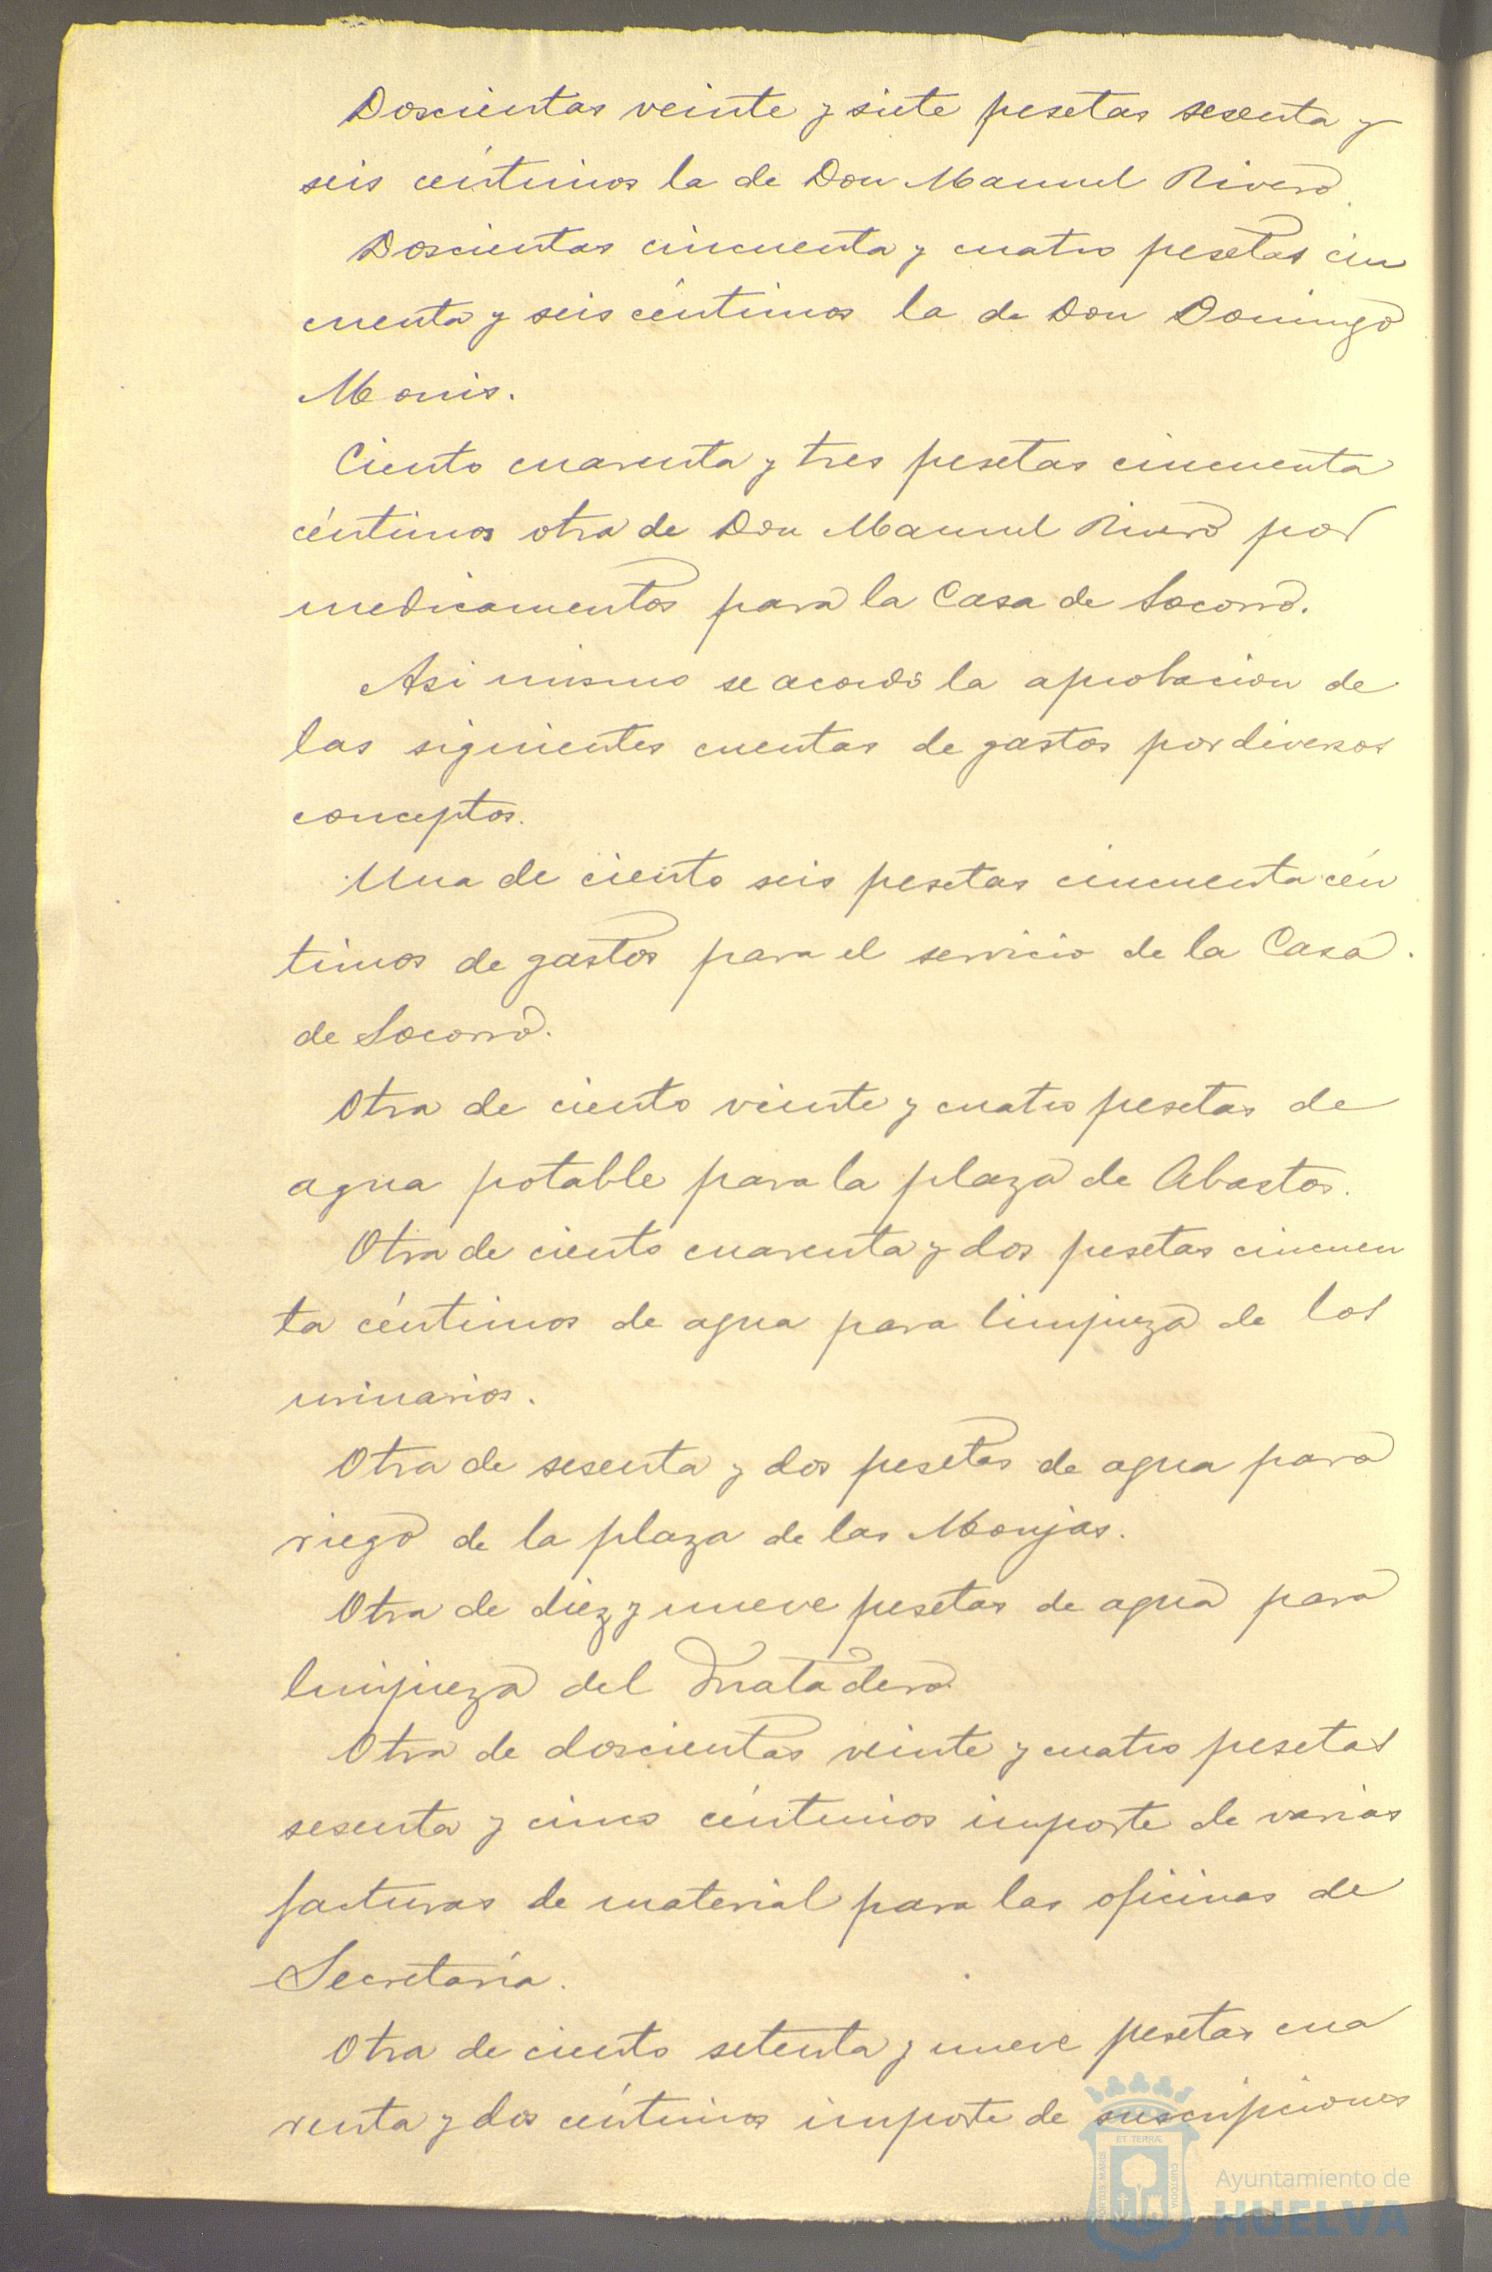 Doscientas veinte y siete pesetas sesenta y
seis céntimos la de Don Manuel Rivero.
Doscientas cincuenta y cuatro pesetas cin
cuenta y seis céntimos la de Don Domingo
Monis.
Ciento cuarenta y tres pesetas cincuenta
céntimos otra de Don Manuel Rivero por
medicamentos para la Casa de Socorro.
Asi mismo se acordó la aprobacion de
las siguientes cuentas de gastos por diversos
conceptos.
Una de ciento seis pesetas cincuenta cén
timos de gastos para el servicio de la Casa
de Socorro.
Otra de ciento veinte y cuatro pesetas de
agua potable para la plaza de Abastos.
Otra de ciento cuarenta y dos pesetas cincuen
ta céntimos de agua para limpieza de los
urinarios.
Otra de sesenta y dos pesetas de agua para
riego de la plaza de las Monjas.
Otra de diez y nueve pesetas de agua para
limpieza del Matadero
Otra de doscientas veinte y cuatro pesetas
sesenta y cinco céntimos importe de varias
facturas de material para las oficinas de
Secretaría.
Otra de ciento setenta y nueve pesetas cua
renta y dos céntimos importe de suscripciones
ET TERRÆ
PORTUS MARIS
CUSTODIA
Ayuntamiento de
HUELVA